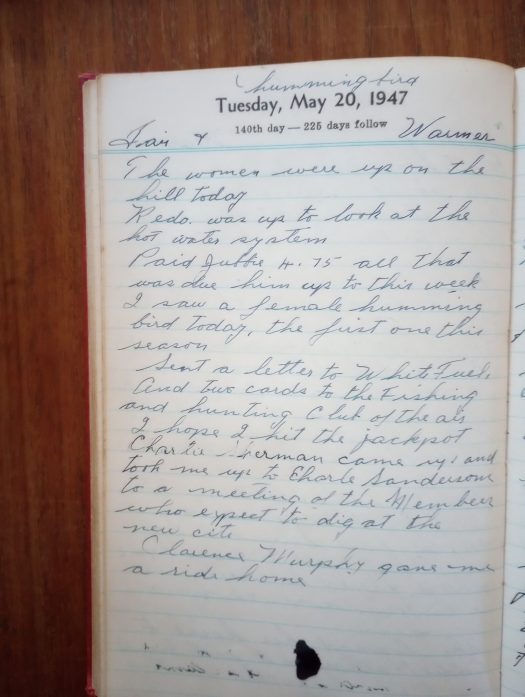 hummingbird
Tuesday, May 20, 1947
140th day — 225 days follow
Fair & Warmer
The women were up on the
hill today
Redo. was up to look at the
hot water system
Paid Jubbie 4.75 all that
was due him up to this week
I saw a female humming
bird today, the first one this
season
Sent a letter to White Fuel,
And two cards to the Fishing
and hunting Club of the air
I hope I hit the jackpot
Charlie came up and
took me up to Sandersons
to a meeting of the Member
who expect to dig at the
new cite
Clarence Murphy gave me
a ride home